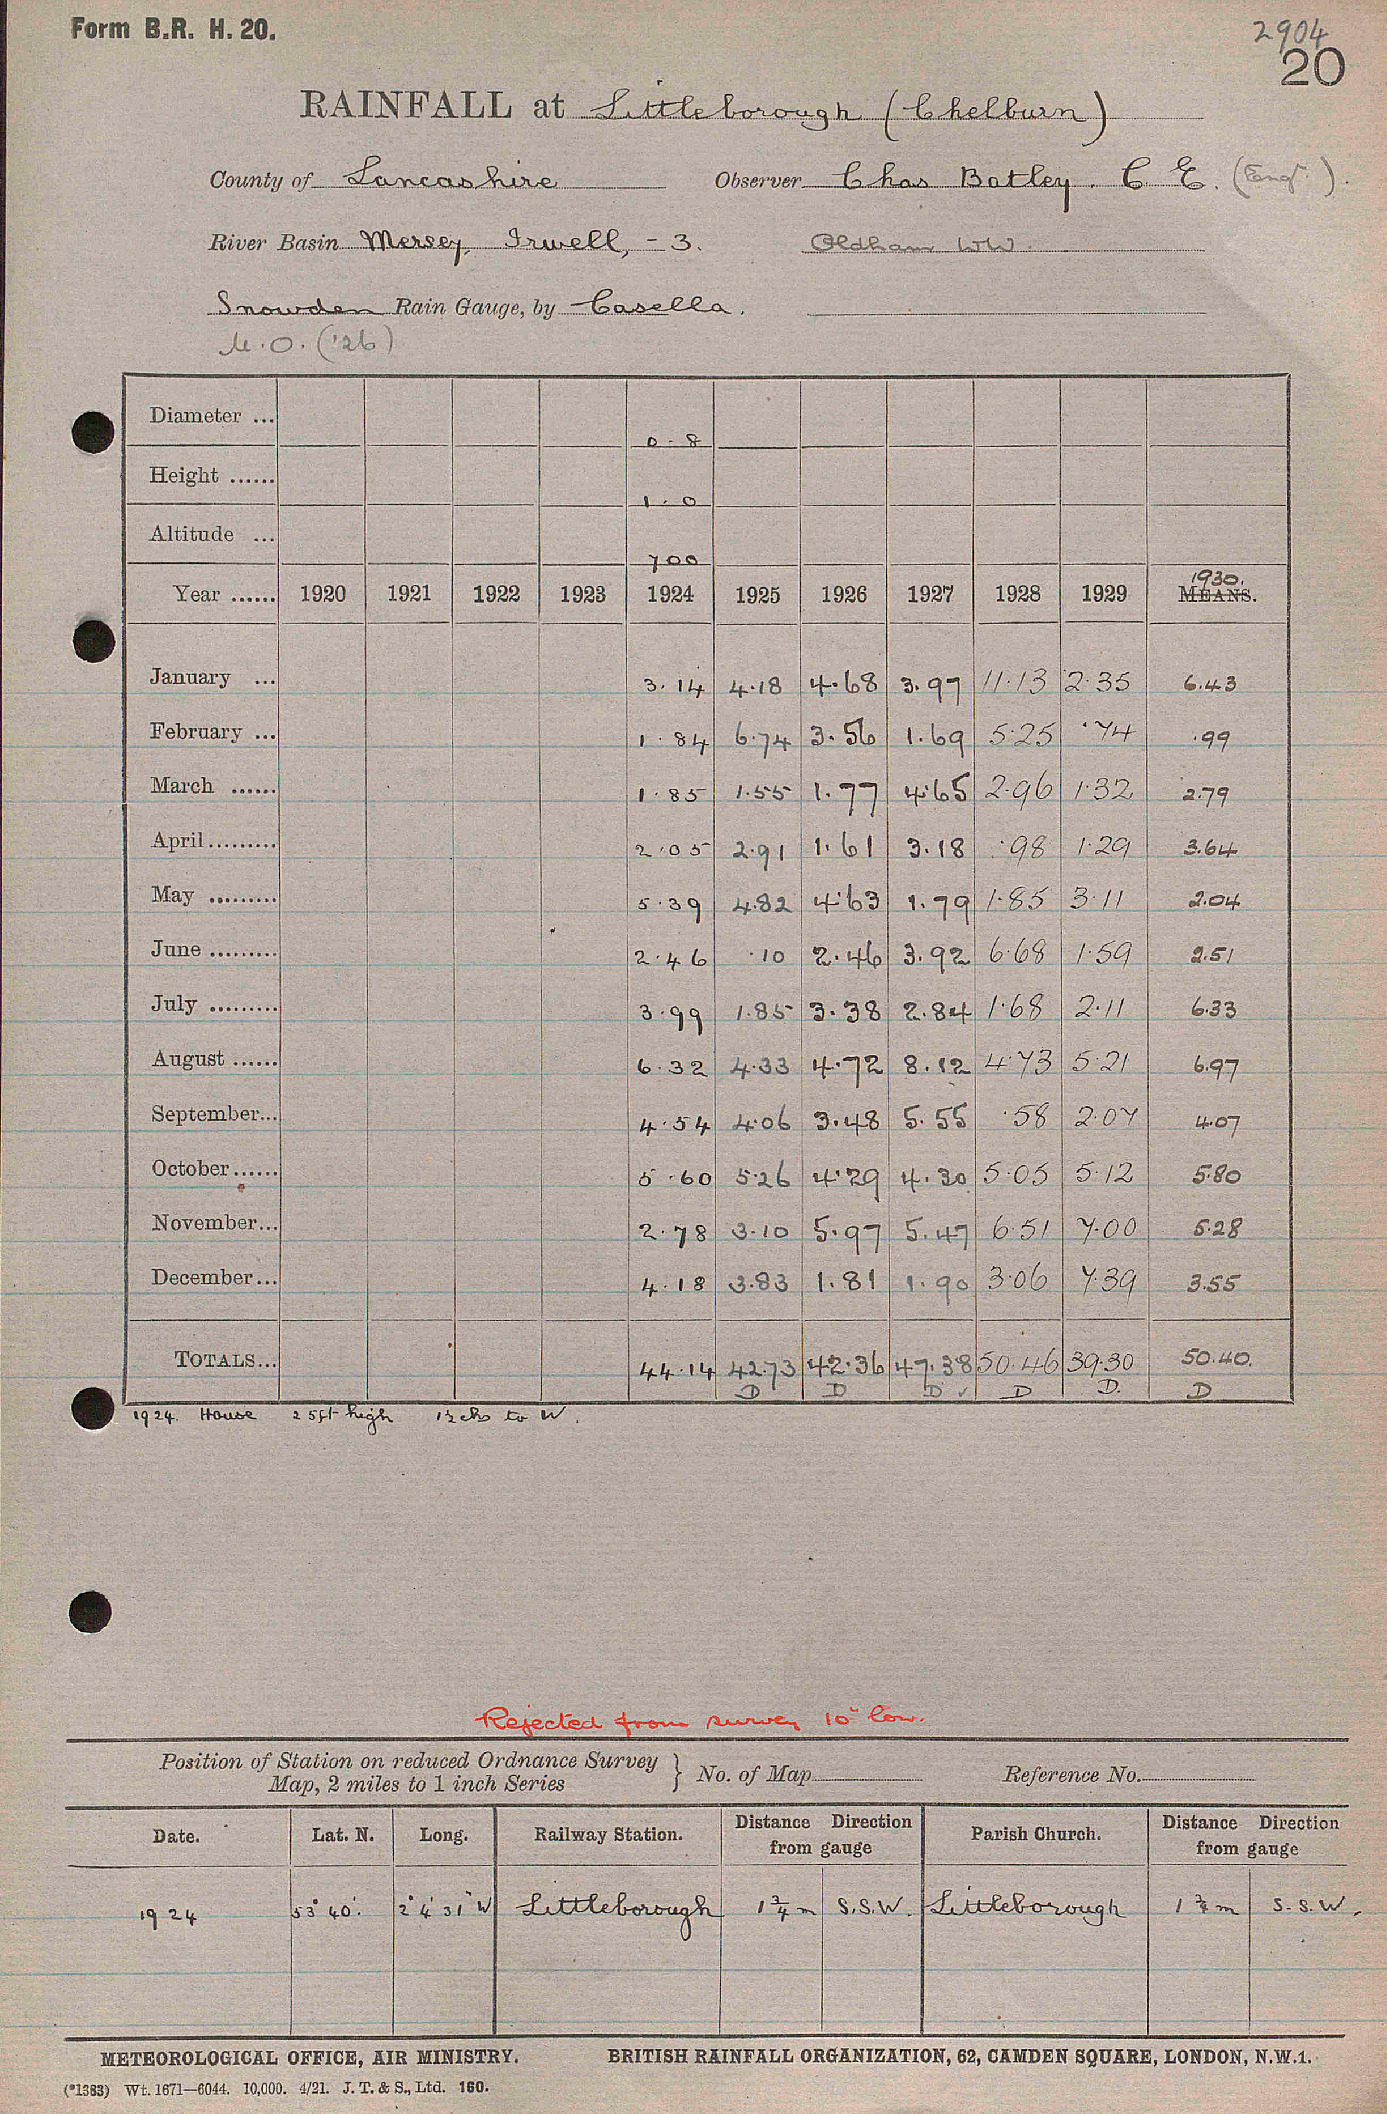 Form B.R. H. 20.
2904
20
RAINFALL at Littleborough (Chelburn)
County of Lancashire Observer Chas Batley. C E. (Engr.).
River Basin Mersey, Irwell, - 3. Oldham WW.
Snowden Rain Gauge, by Casella.
M.O. ('26)
Diameter ... 0 - 8
Height ...... 1 . 0
Altitude ... 700
1930.
Year ...... 1920 1921 1922 1923 1924 1925 1926 1927 1928 1929 MEANS.
January ... 3.14 4.18 4.68 3.97 11.13 2.35 6.43
February ... 1.84 6.74 3.56 1.69 5.25 .74 .99
March ...... 1.85 1.55 1.77 4.65 2.96 1.32 2.79
April......... 2.05 2.91 1.61 3.18 .98 1.29 3.64
May ......... 5.39 4.82 4.63 1.79 1.85 3.11 2.04
June ......... 2.46 .10 2.46 3.92 6.68 1.59 2.51
July ......... 3.99 1.85 3.38 2.84 1.68 2.11 6.33
August ...... 6.32 4.33 4.72 8.12 4.73 5.21 6.97
September... 4.54 4.06 3.48 5.55 .58 2.07 4.07
October...... 5.60 5.26 4.29 4.30 5.05 5.12 5.80
November... 2.78 3.10 5.97 5.47 6.51 7.00 5.28
December... 4.18 3.83 1.81 1.90 3.06 7.39 3.55
TOTALS... 44.14 42.73 42.36 47.38 50.46 39.30 50.40.
D D D ✓ D D. D
1924. House 25ft high 1½ chs to W.
Rejected from survey 10" low.
Position of Station on reduced Ordnance Survey
Map, 2 miles to 1 inch Series } No. of Map Reference No.
Date. Lat. N. Long. Railway Station. Distance Direction from gauge Parish Church. Distance Direction from gauge
1924 53° 40'. 2° 4' 31" W Littleborough 1¾ m S.S.W. Littleborough 1¾ m S.S.W.
METEOROLOGICAL OFFICE, AIR MINISTRY. BRITISH RAINFALL ORGANIZATION, 62, CAMDEN SQUARE, LONDON, N.W.1.
(*1383) Wt. 1671—6044. 10,000. 4/21. J. T. & S., Ltd. 160.